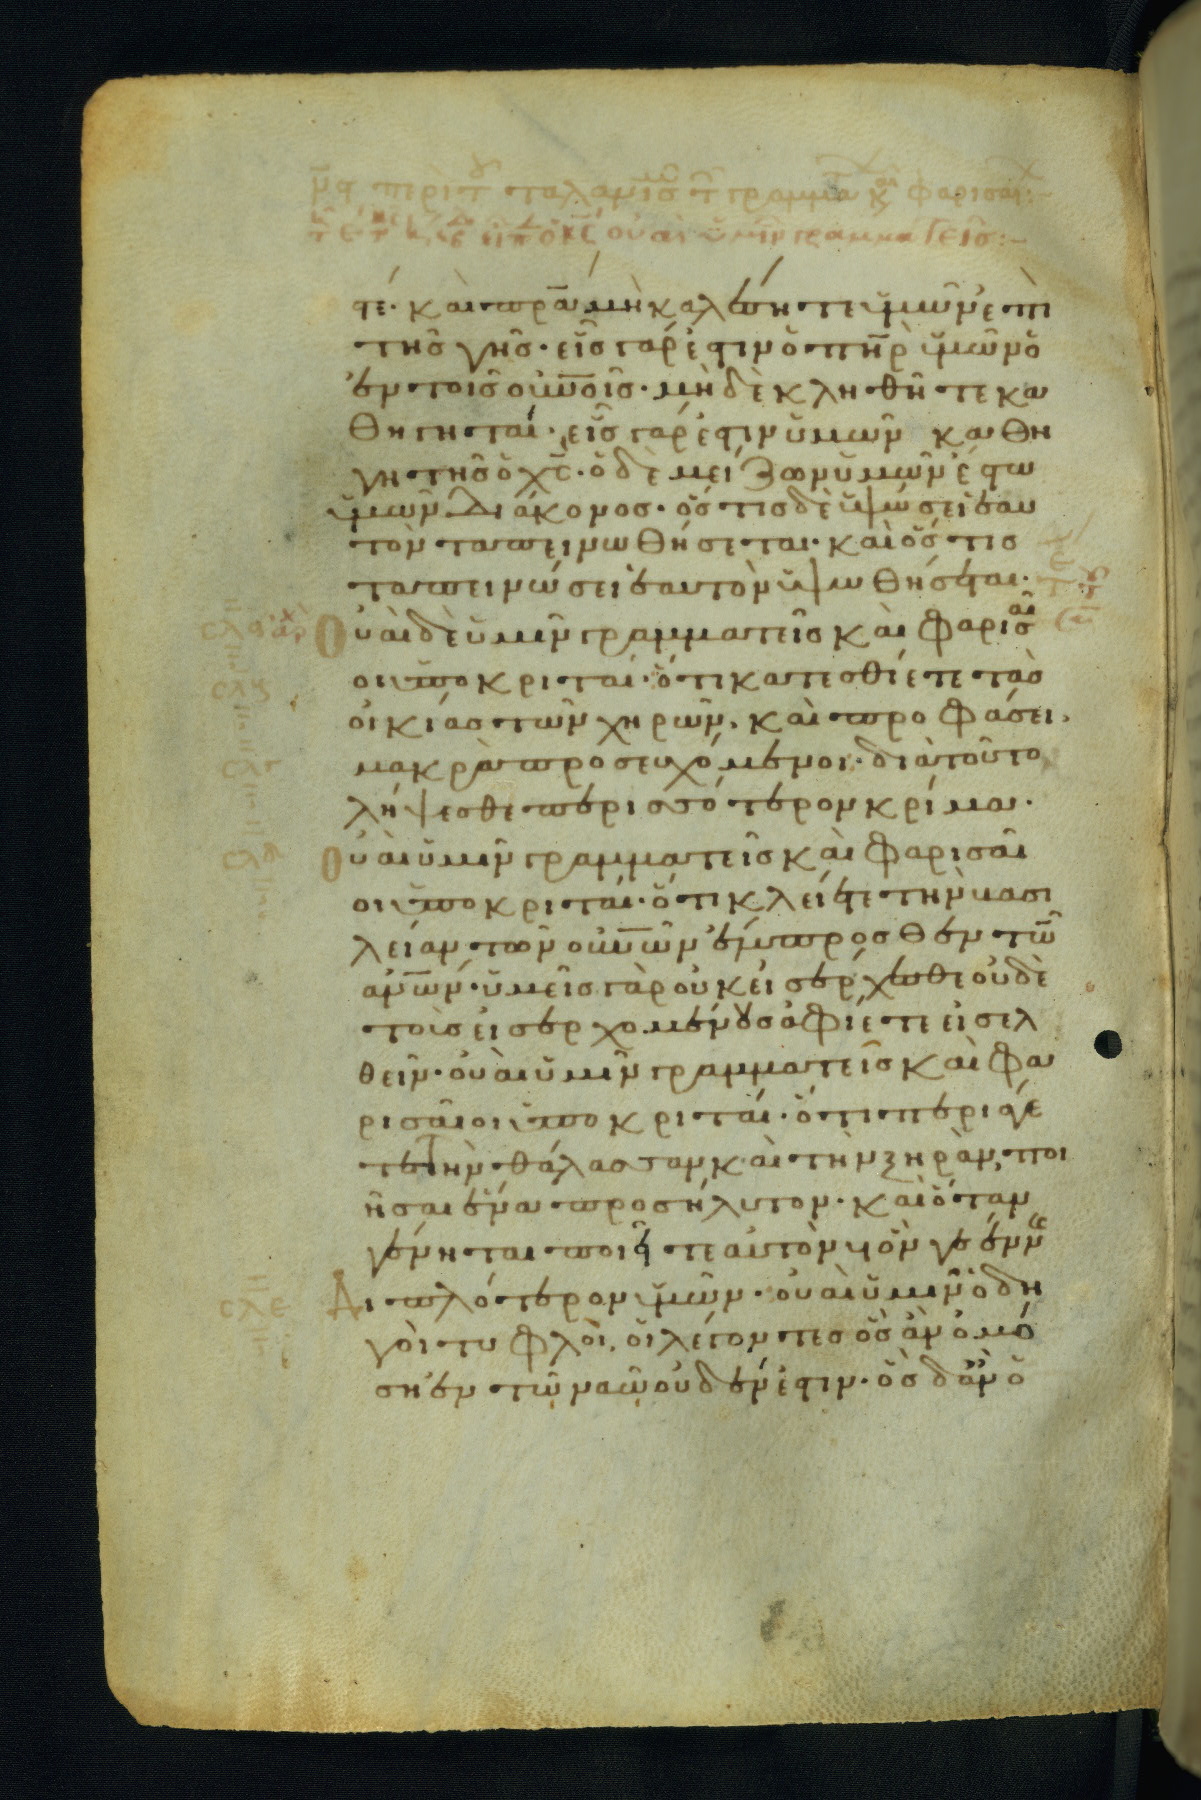 στέ· καὶ πρ̅α μὴ καλέσητε ὑμῶν ἐπὶ
τῆς γῆς· εἷς γάρ ἐστιν ὁ π̅η̅ρ ὑμῶν ὁ
ἐν τοῖς οὐ̅ν̅οῖς· μὴ δὲ κληθῆτε κα
θηγηταί· εἷς γάρ ἐστιν ὑμῶν καθη
γητῆς ὁ χ̅ς· ὁ δὲ μείζων ὑμῶν ἔσται
ὑμῶν διάκονος· ὅστις δὲ ὑψώσει ἑαυ
τὸν ταπεινωθήσεται· καὶ ὅστις
ταπεινώσει ἑαυτὸν ὑψωθήσεται·
Οὐαὶ δὲ ὑμῖν γραμματεῖς καὶ φαρισαῖ
οι ὑποκριταί· ὅτι κατεσθίετε τὰς
οἰκίας τῶν χηρῶν, καὶ προφάσει
μακρὰ προσευχόμενοι· διὰ τοῦτο
λήψεσθε περισσότερον κρίμα·
Οὐαὶ ὑμῖν γραμματεῖς καὶ φαρισαῖ
οι ὑποκριταί· ὅτι κλείετε τὴν βασι
λείαν τῶν οὐ̅ν̅ῶν ἔμπροσθεν τῶν
ἀν̅ων· ὑμεῖς γὰρ οὐκ εἰσέρχεσθε οὐδὲ
τοὺς εἰσερχομένους ἀφίετε εἰσελ
θεῖν· οὐαὶ ὑμῖν γραμματεῖς καὶ φα
ρισαῖοι ὑποκριταί· ὅτι περιάγε
τε τὴν θάλασσαν καὶ τὴν ξηρὰν, ποι
ῆσαι ἕνα προσήλυτον· καὶ ὅταν
γένηται ποιεῖτε αὐτὸν υἱὸν γεέννης
Διπλότερον ὑμῶν· οὐαὶ ὑμῖν ὁδη
γοὶ τυφλοὶ, οἱ λέγοντες ὃς ἂν ὀμό
σῃ ἐν τῷ ναῷ οὐδέν ἐστιν· ὃς δ' ἂν ὀ